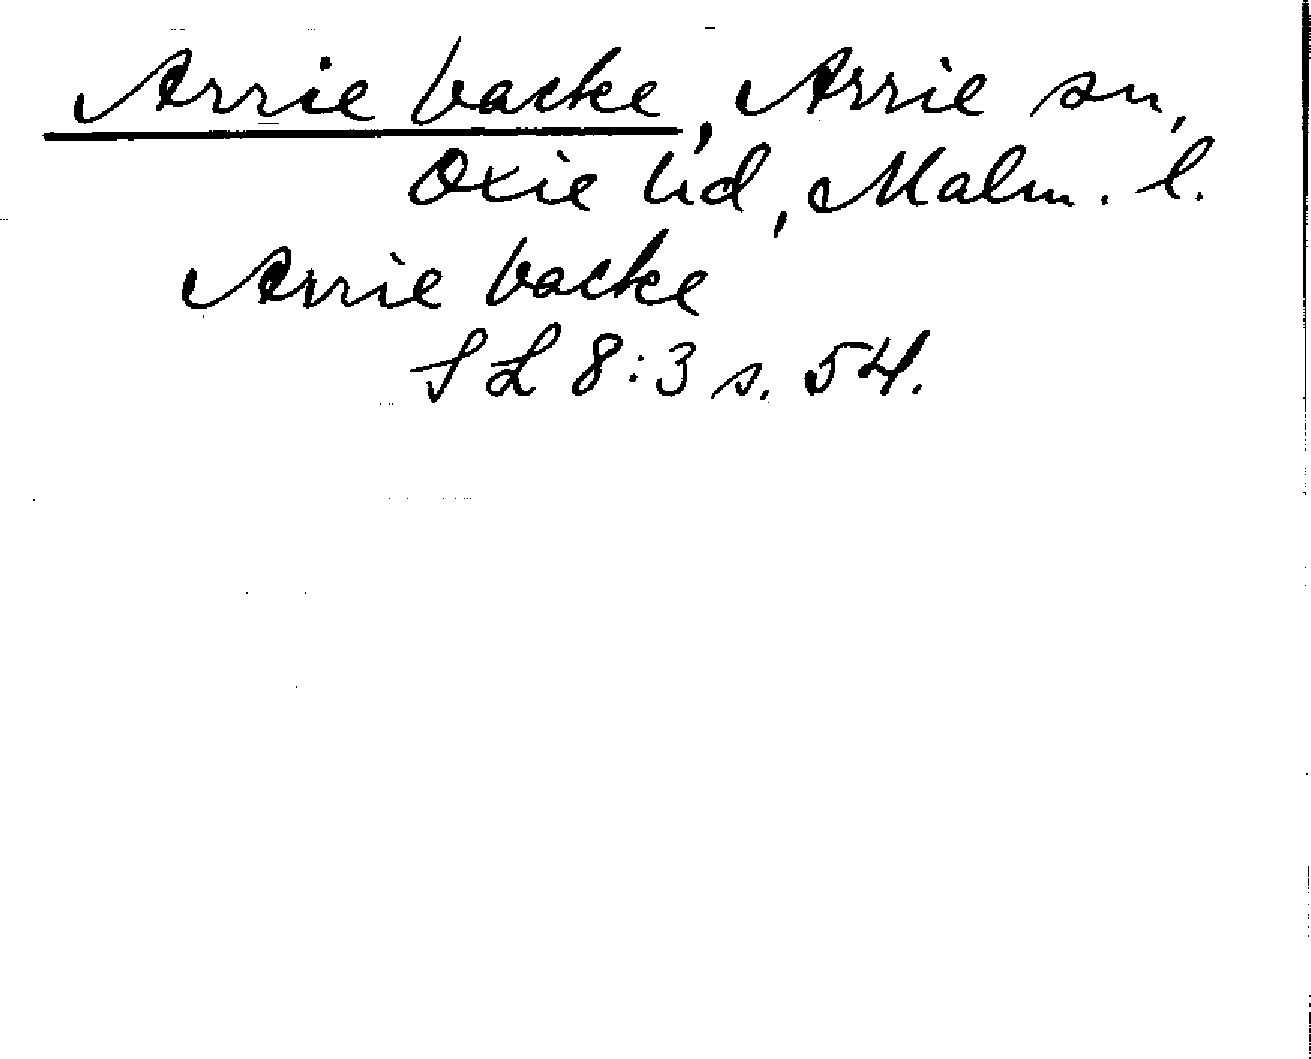 Arrie backe, Arrie sn,
Oxie hd, Malm. l.
Arrie backe
SL 8:3 s. 54.